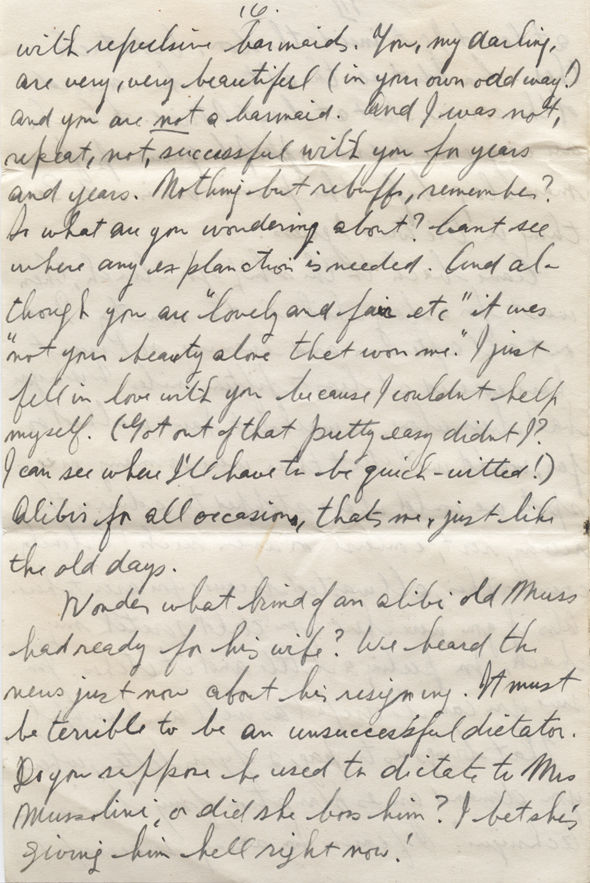 16.
with repulsive barmaids. You, my darling,
are very, very beautiful (in your own odd way!)
and you are not a barmaid. And I was not,
repeat, not, successful with you for years
and years. Nothing but rebuffs, remember?
So what are you wondering about? Cant see
where any explanation is needed. And al-
though you are "lovely and fair etc" it was
"not your beauty alone that won me." I just
fell in love with you because I couldnt help
myself. (Got out of that pretty easy didnt I?
I can see where I'll have to be quick-witted!)
Alibis for all occasions, thats me, just like
the old days.
Wonder what kind of an alibi old Muss
had ready for his wife? We heard the
news just now about his resigning. It must
be terrible to be an unsuccessful dictator.
Do you suppose he used to dictate to Mrs
Mussolini, or did she boss him? I bet she's
giving him hell right now!